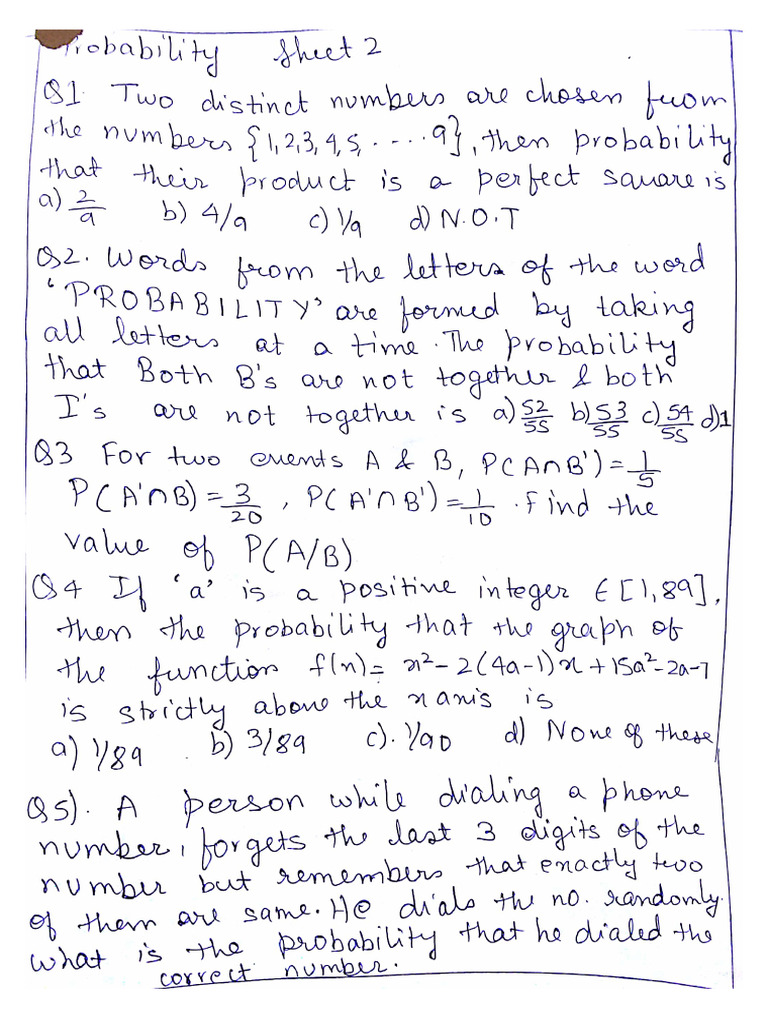 Probability Sheet 2
Q1. Two distinct numbers are chosen from
the numbers {1,2,3,4,5, .... 9}, then probability
that their product is a perfect square is
a) 2/9 b) 4/9 c) 1/9 d) N.O.T
Q2. Words from the letters of the word
'PROBABILITY' are formed by taking
all letters at a time. The probability
that Both B's are not together & both
I's are not together is a) 52/55 b) 53/55 c) 54/55 d) 1
Q3 For two events A & B, P(A∩B') = 1/5
P(A'∩B) = 3/20, P(A'∩B') = 1/10. Find the
value of P(A/B)
Q4 If 'a' is a positive integer ∈ [1,89],
then the probability that the graph of
the function f(x) = x²-2(4a-1)x+15a²-2a-7
is strictly above the x axis is
a) 1/89 b) 3/89 c). 1/90 d) None of these
Q5). A person while dialing a phone
number, forgets the last 3 digits of the
number but remembers that exactly two
of them are same. He dials the no. randomly.
what is the probability that he dialed the
correct number.